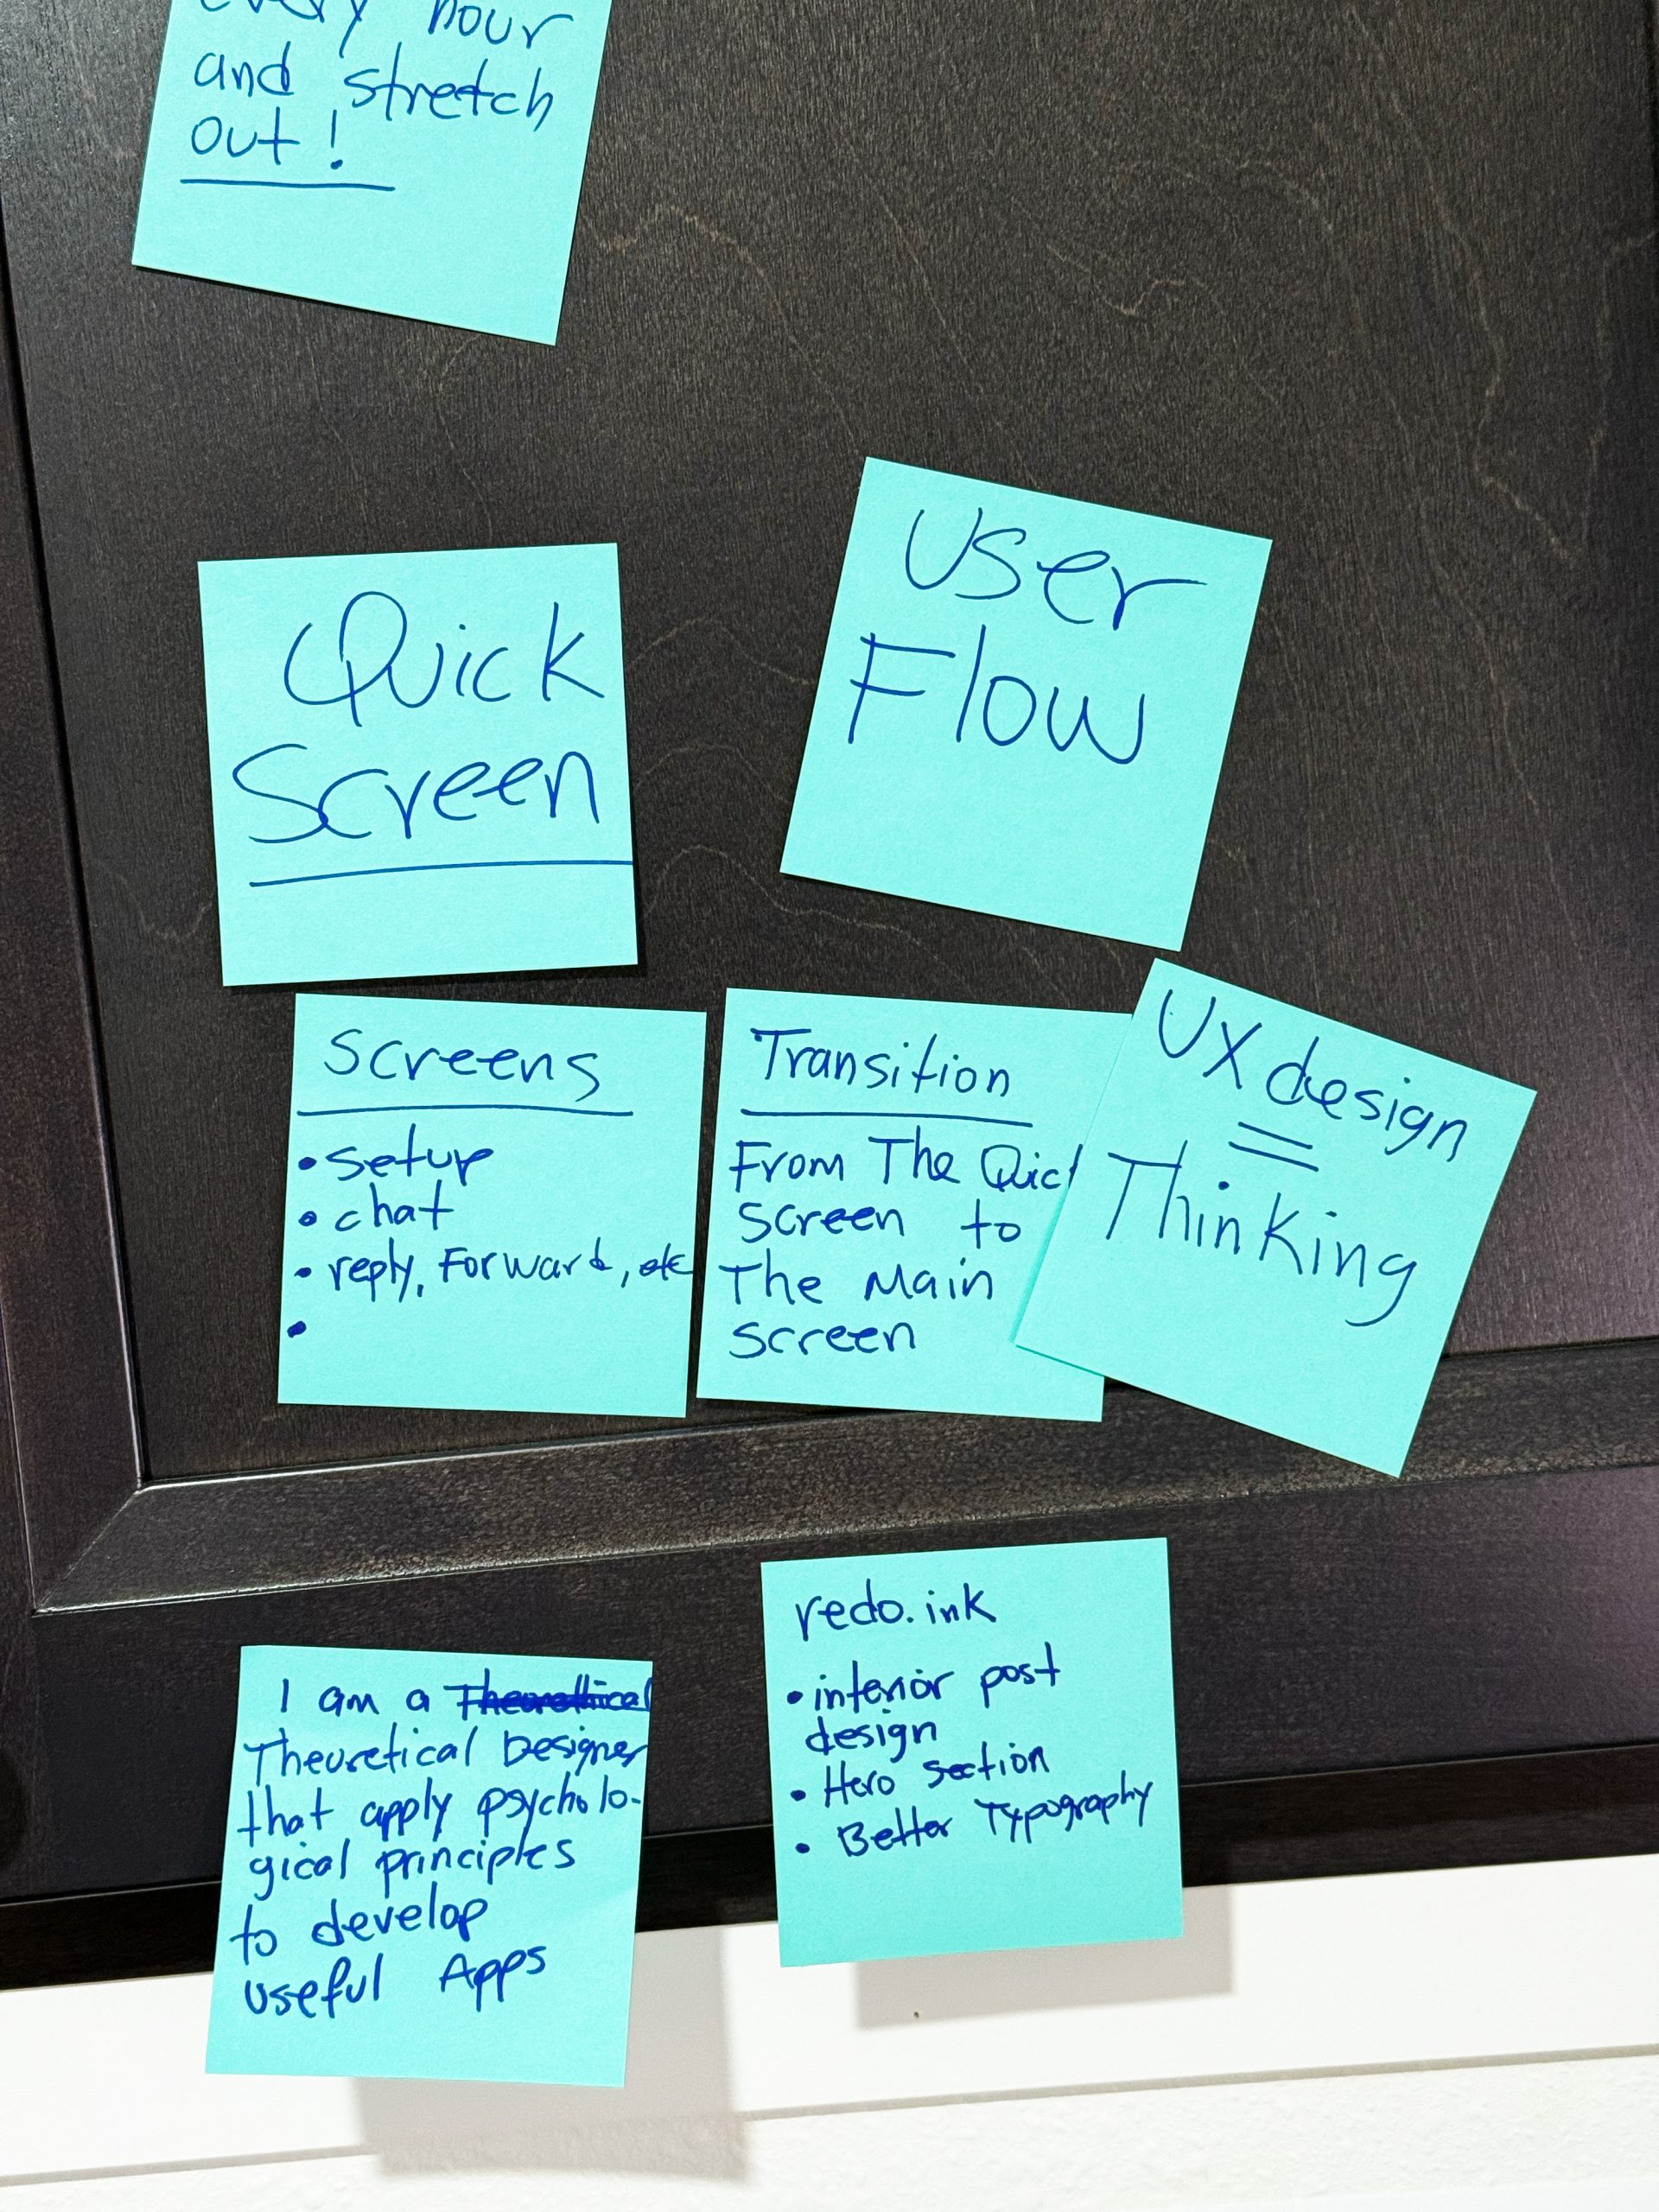 every hour
and stretch
out!
Quick
Screen
User
Flow
Screens
• setup
• chat
• reply, Forward, etc
•
Transition
From The Quic
screen to
The Main
screen
UX design
=
Thinking
I am a
Theoretical Designer
that apply psycholo-
gical principles
to develop
useful Apps
redo.ink
• interior post
design
• Hero section
• Better Typography